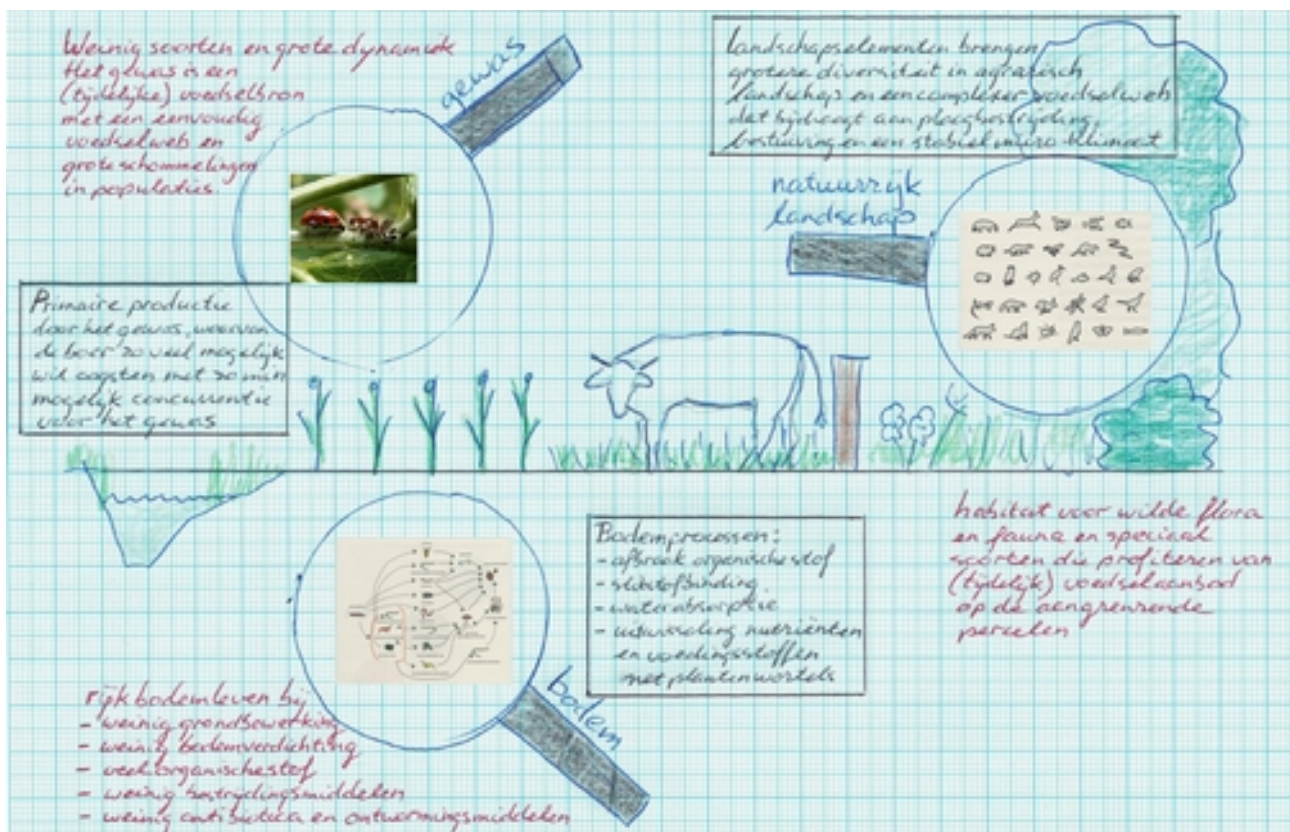 Weinig soorten en grote dynamiek
Het gewas is een
(tijdelijke) voedselbron
met een eenvoudig
voedselweb en
grote schommelingen
in populaties
gewas
landschapselementen brengen
grotere diversiteit in agrarisch
landschap en een complexer voedselweb
dat bijdraagt aan plaagbestrijding,
bestuiving en een stabiel micro-klimaat
natuurrijk
landschap
Primaire productie
door het gewas, waarvan
de boer zo veel mogelijk
wil oogsten met zo min
mogelijk concurrentie
voor het gewas
Bodemprocessen:
- afbraak organische stof
- stikstofbinding
- waterabsorptie
- uitwisseling nutriënten
en voedingsstoffen
met plantenwortels
habitat voor wilde flora
en fauna en speciaal
soorten die profiteren van
(tijdelijk) voedselaanbod
op de aangrenzende
percelen
bodem
rijk bodemleven bij
- weinig grondbewerking
- weinig bodemverdichting
- veel organische stof
- weinig bestrijdingsmiddelen
- weinig antibiotica en ontwormingsmiddelen